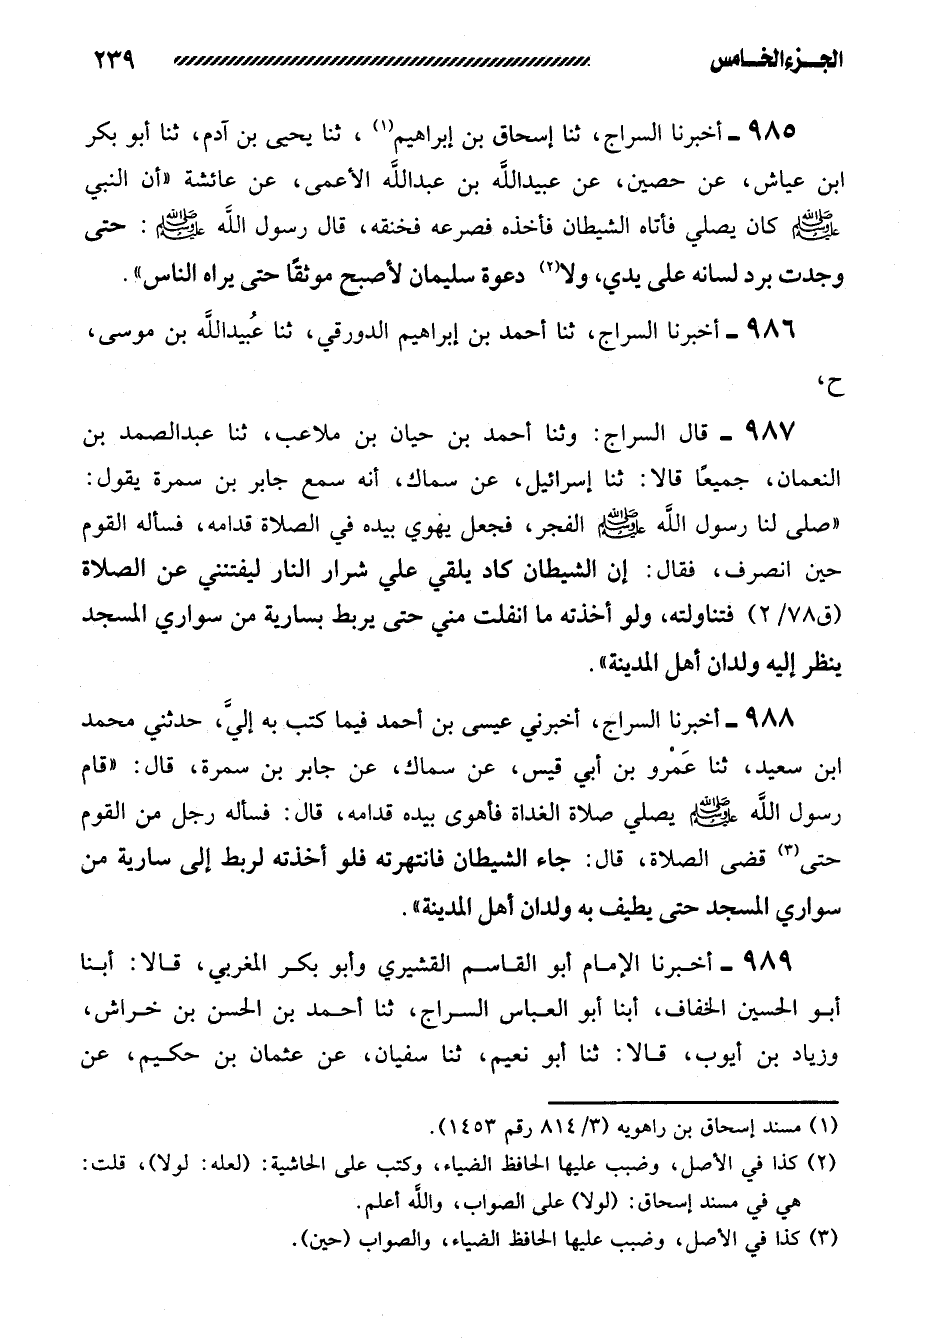 الجزء الخامس ٢٣٩
٩٨٥ ـ أخبرنا السراج، ثنا إسحاق بن إبراهيم(١)، ثنا يحيى بن آدم، ثنا أبو بكر
ابن عياش، عن حصين، عن عبيدالله بن عبدالله الأعمى، عن عائشة «أن النبي
ﷺ كان يصلي فأتاه الشيطان فأخذه فصرعه فخنقه، قال رسول اللَّه ﷺ : حتى
وجدت برد لسانه على يدي، ولا(٢) دعوة سليمان لأصبح موثقًا حتى يراه الناس».
٩٨٦ ـ أخبرنا السراج، ثنا أحمد بن إبراهيم الدورقي، ثنا عُبيداللَّه بن موسى،
ح،
٩٨٧ ـ قال السراج: وثنا أحمد بن حيان بن ملاعب، ثنا عبدالصمد بن
النعمان، جميعًا قالا: ثنا إسرائيل، عن سماك، أنه سمع جابر بن سمرة يقول:
«صلى لنا رسول اللَّه ﷺ الفجر، فجعل يهوي بيده في الصلاة قدامه، فسأله القوم
حين انصرف، فقال: إن الشيطان كاد يلقي علي شرار النار ليفتنني عن الصلاة
(ق٧٨/ ٢) فتناولته، ولو أخذته ما انفلت مني حتى يربط بسارية من سواري المسجد
ينظر إليه ولدان أهل المدينة».
٩٨٨ ـ أخبرنا السراج، أخبرني عيسى بن أحمد فيما كتب به إليَّ، حدثني محمد
ابن سعيد، ثنا عَمْرو بن أبي قيس، عن سماك، عن جابر بن سمرة، قال: «قام
رسول اللَّه ﷺ يصلي صلاة الغداة فأهوى بيده قدامه، قال: فسأله رجل من القوم
حتى(٣) قضى الصلاة، قال: جاء الشيطان فانتهرته فلو أخذته لربط إلى سارية من
سواري المسجد حتى يطيف به ولدان أهل المدينة».
٩٨٩ ـ أخبرنا الإمام أبو القاسم القشيري وأبو بكر المغربي، قالا: أبنا
أبو الحسين الخفاف، أبنا أبو العباس السراج، ثنا أحمد بن الحسن بن خراش،
وزياد بن أيوب، قالا: ثنا أبو نعيم، ثنا سفيان، عن عثمان بن حكيم، عن
(١) مسند إسحاق بن راهويه (٣/ ٨١٤ رقم ١٤٥٣).
(٢) كذا في الأصل، وضبب عليها الحافظ الضياء، وكتب على الحاشية: (لعله: لولا)، قلت:
هي في مسند إسحاق: (لولا) على الصواب، واللَّه أعلم.
(٣) كذا في الأصل، وضبب عليها الحافظ الضياء، والصواب (حين).